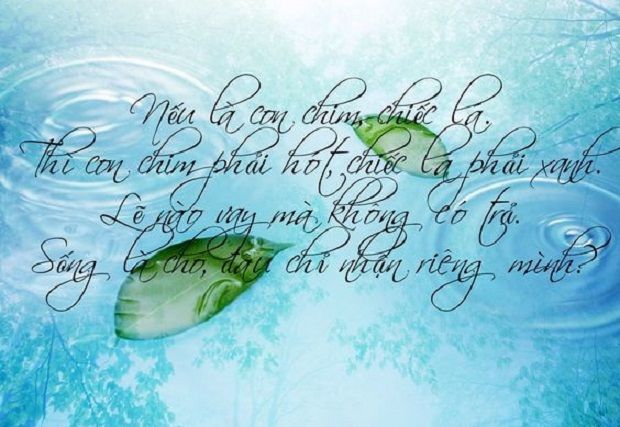 Nếu là con chim, chiếc lá,
Thì con chim phải hót, chiếc lá phải xanh.
Lẽ nào vay mà không có trả.
Sống là cho, đâu chỉ nhận riêng mình?